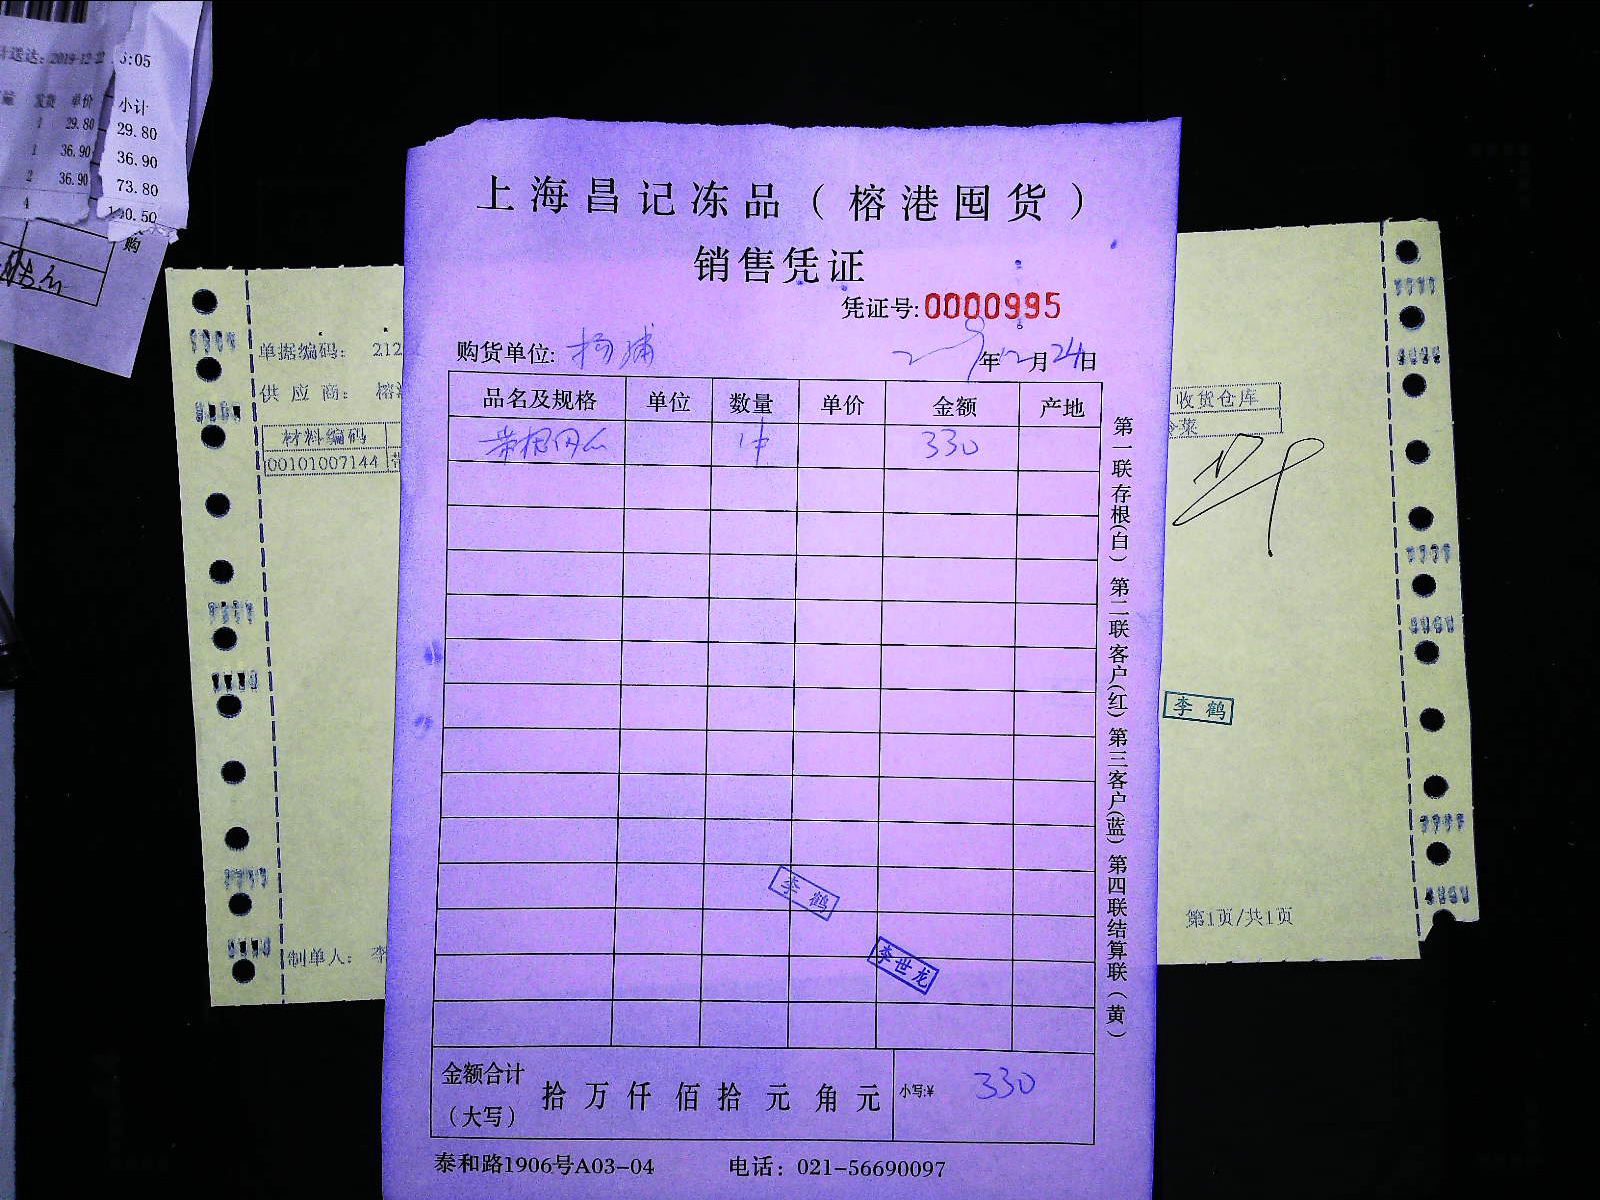 2019-12-22
5:05
发货 单价 小计
1 29.80 29.80
1 36.90 36.90
2 36.90 73.80
4
购
上海昌记冻品（榕港囤货）
销售凭证
凭证号:0000995
购货单位: 杨浦
年12月24日
品名及规格 单位 数量 单价 金额 产地
1件 330
金额合计（大写） 拾 万 仟 佰 拾 元 角 元 小写:¥ 330
泰和路1906号A03-04 电话：021-56690097
第一联存根(白) 第二联客户(红) 第三客户(蓝) 第四联结算联(黄)
李鹤
李世龙
单据编码： 212
供应商： 榕
材料编码
00101007144
制单人： 李
收货仓库
冷菜
李鹤
第1页/共1页